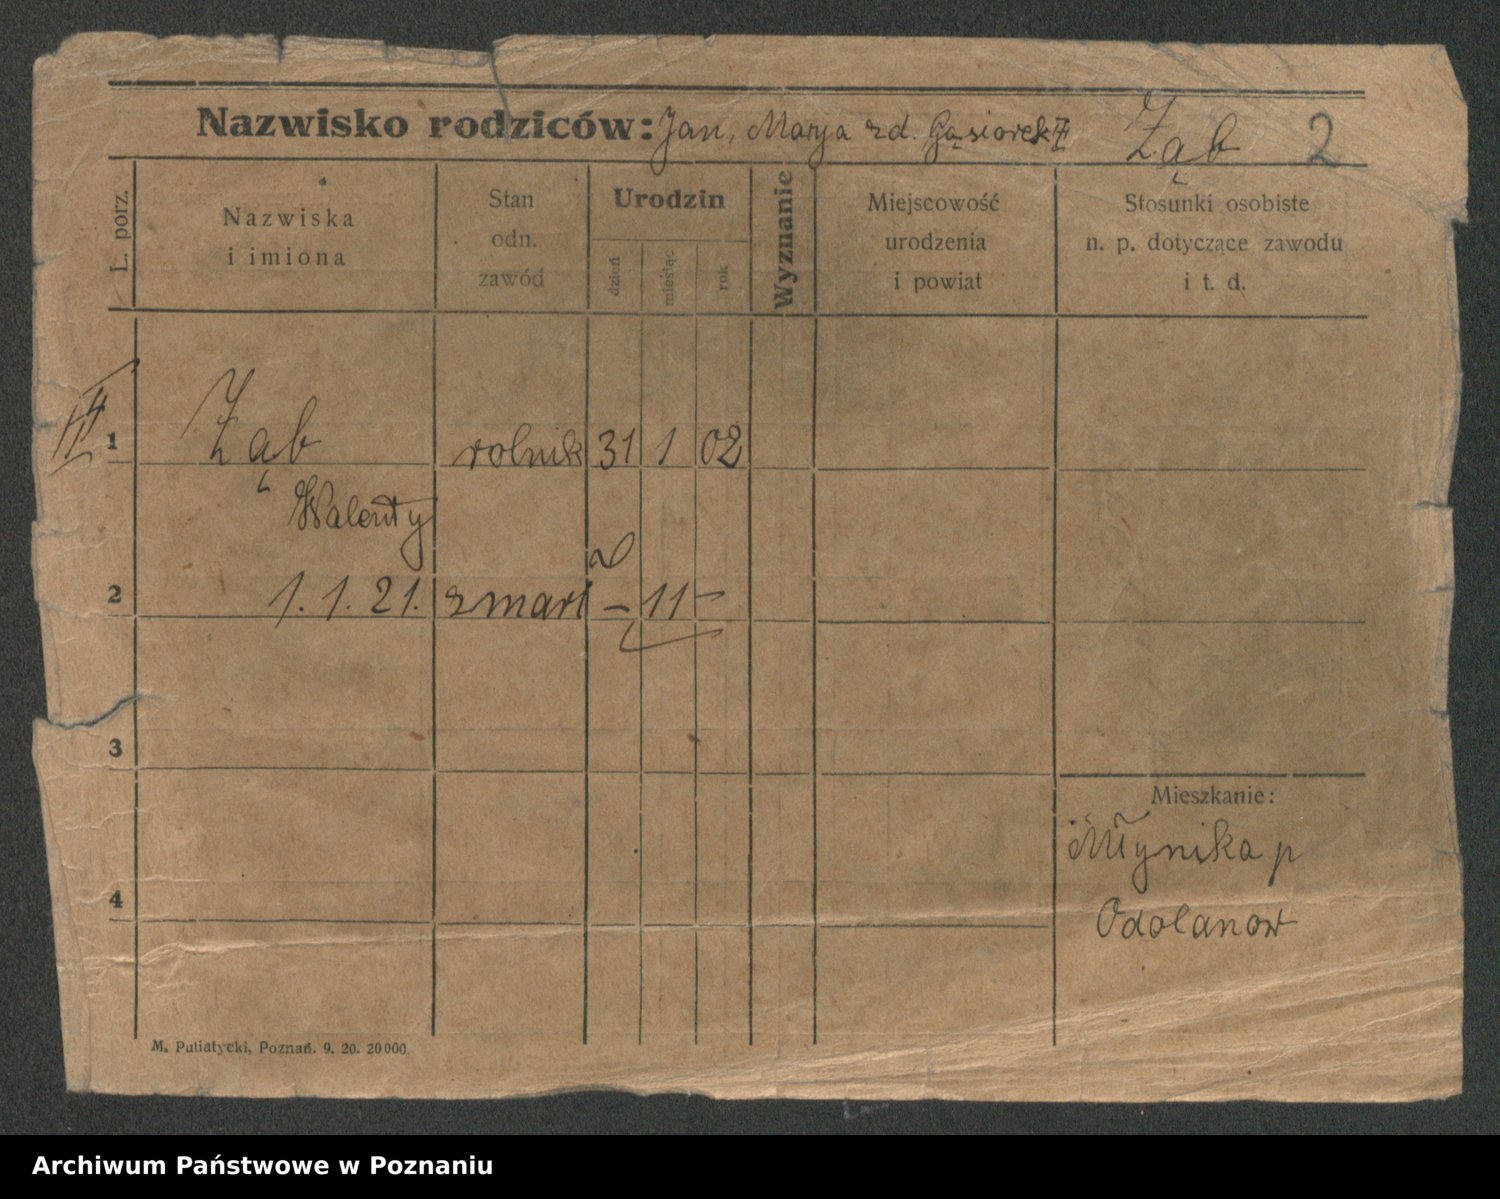 Nazwisko rodziców: Jan, Marya zd. Gąsiorek Ząb 2
L. porz.
Nazwiska
i imiona
Stan
odn.
zawód
Urodzin
dzień
miesiąc
rok
Wyznanie
Miejscowość
urodzenia
i powiat
Stosunki osobiste
n. p. dotyczące zawodu
i t. d.
1 Ząb rolnik 31 1 02
Walenty
2 1. 1. 21. zmarł – 11 –
3
Mieszkanie:
Młynika p
4
Odolanow
M. Putiatycki, Poznań. 9. 20. 20000.
Archiwum Państwowe w Poznaniu